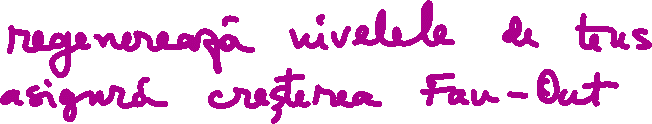 regenerează nivelele de tens
asigură creșterea Fan-Out